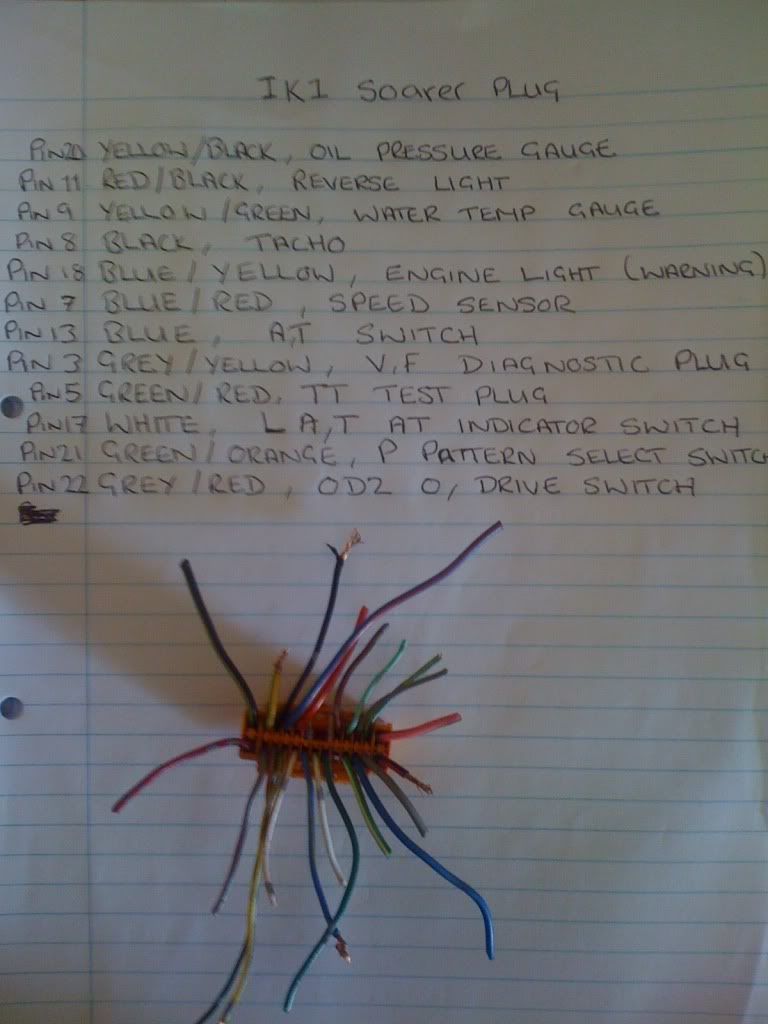 IK1 Soarer PLUG
PiN20 YELLOW/BLACK, OIL PRESSURE GAUGE
PiN 11 RED/BLACK, REVERSE LIGHT
PiN 9 YELLOW/GREEN, WATER TEMP GAUGE
PiN 8 BLACK, TACHO
PiN 18 BLUE/YELLOW, ENGINE LIGHT (WARNING)
PiN 7 BLUE/RED, SPEED SENSOR
PiN 13 BLUE, A,T SWITCH
PiN 3 GREY/YELLOW, V,F DIAGNOSTIC PLUG
PiN5 GREEN/RED, TT TEST PLUG
PiN17 WHITE, L A,T AT INDICATOR SWITCH
PiN21 GREEN/ORANGE, P PATTERN SELECT SWITC
PiN22 GREY/RED, OD2 O/DRIVE SWITCH